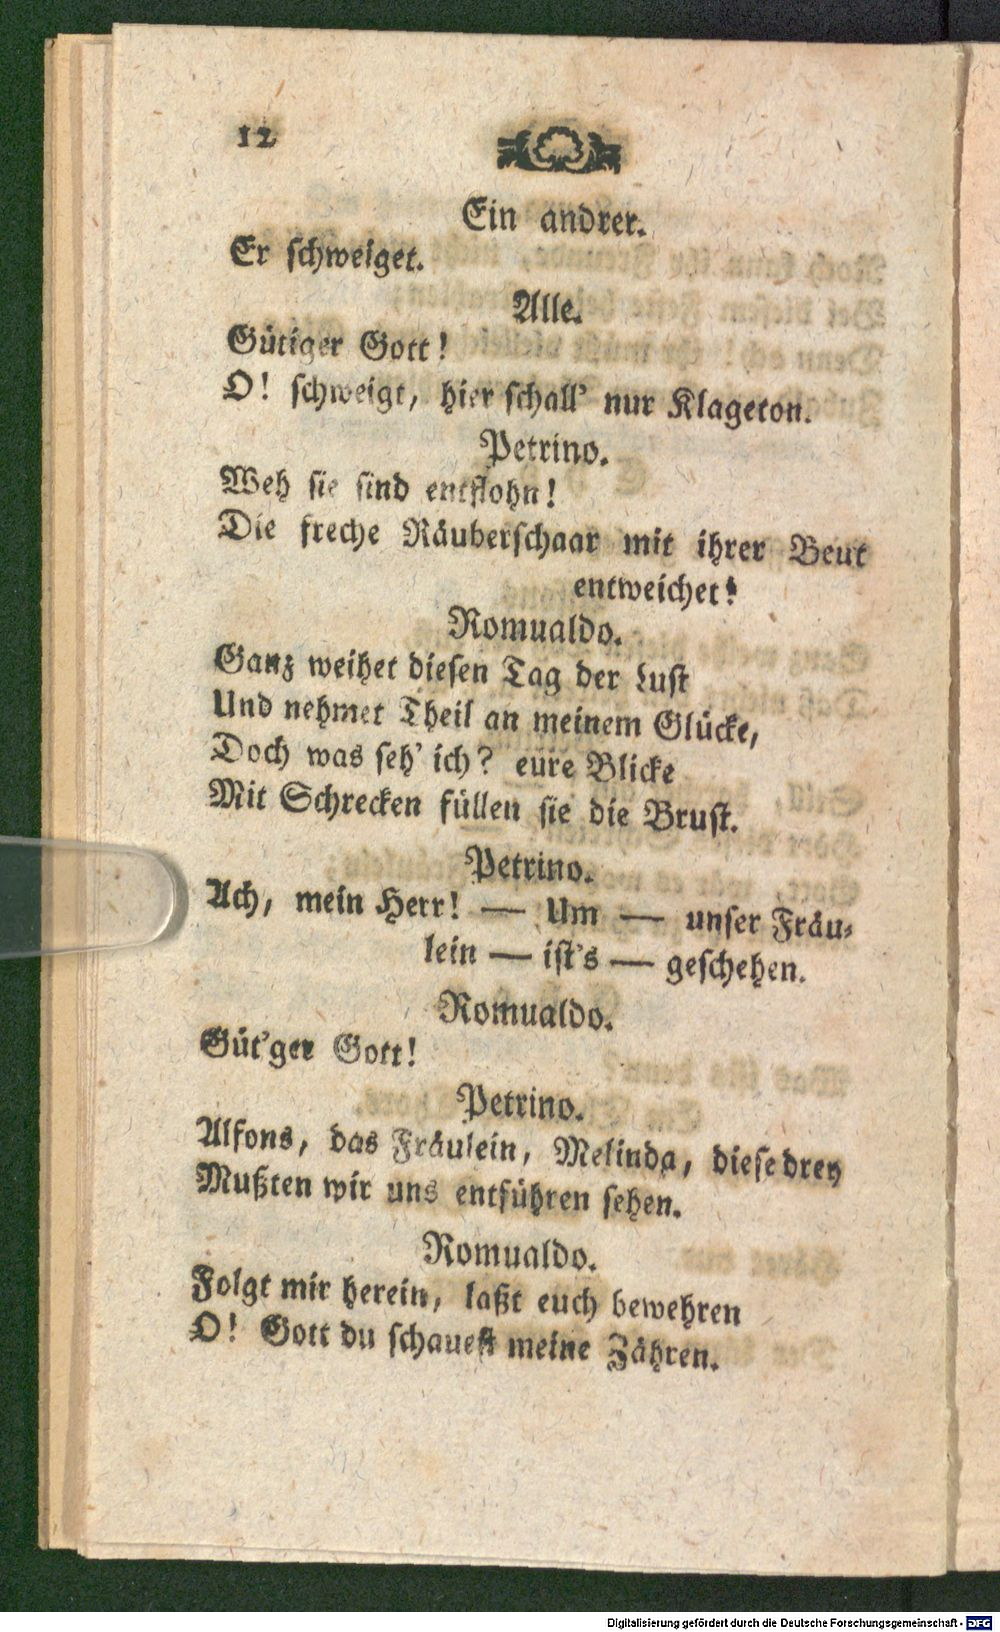 12
Ein andrer.
Er schweiget.
Alle.
Gütiger Gott!
O! schweigt, hier schall' nur Klageton.
Petrino.
Weh sie sind entflohn!
Die freche Räuberschaar mit ihrer Beut
entweichet!
Romualdo.
Ganz weihet diesen Tag der Lust
Und nehmet Theil an meinem Glücke,
Doch was seh' ich? eure Blicke
Mit Schrecken füllen sie die Brust.
Petrino.
Ach, mein Herr! — Um — unser Fräu-
lein — ist's — geschehen.
Romualdo.
Güt'ger Gott!
Petrino.
Alfons, das Fräulein, Melinda, diese drey
Mußten wir uns entführen sehen.
Romualdo.
Folgt mir herein, laßt euch bewehren
O! Gott du schauest meine Zähren.
Digitalisierung gefördert durch die Deutsche Forschungsgemeinschaft - DFG